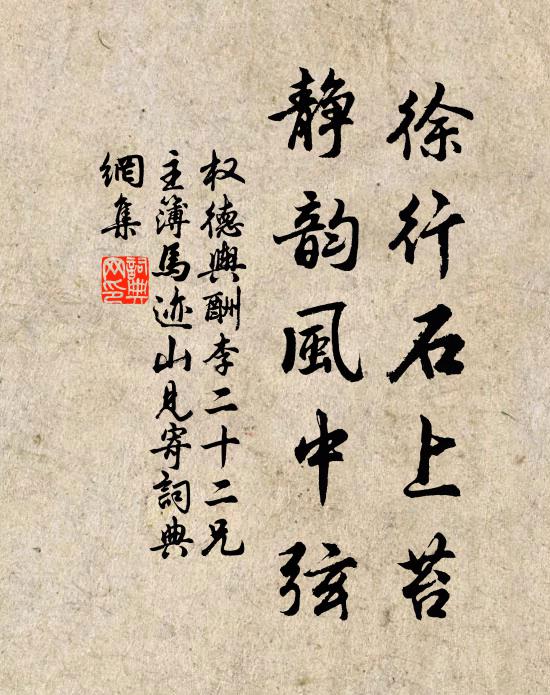 徐行石上苔
静韵風中弦
权德舆酬李二十二兄
主簿馬迹山見寄詞典
網集
詞典
网印